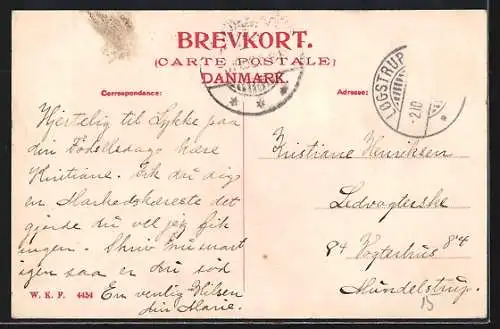 BREVKORT.
(CARTE POSTALE)
DANMARK.
Correspondance:
Hjertelig til Lykke paa
din Födselsdag kære
Kristiane. Fik du dig
en Markedskæreste det
gjorde du vel jeg fik
ingen. Skriv nu snart
igen saa er du söd
En venlig Hilsen
din Marie.
W. K. F. 4434
Adresse:
LØGSTRUP
2.10
Kristiane Henriksen
Ledvogterske
84 Vogterhus 84
Mundelstrup.